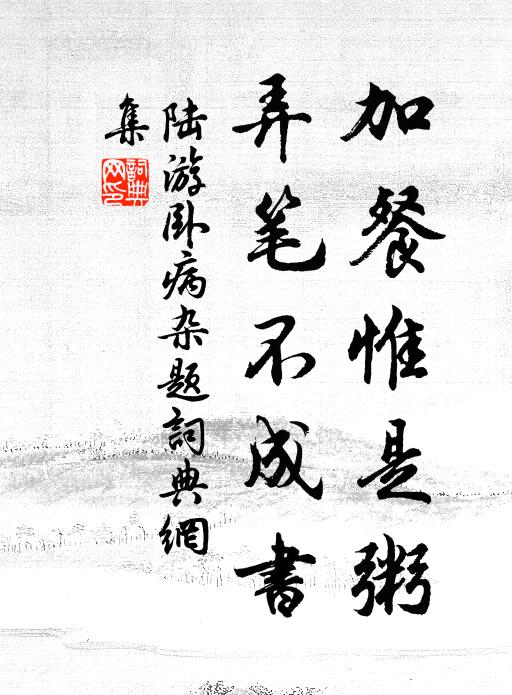 加餐惟是粥
弄笔不成書
陆游卧病杂题詞典網
集
詞典网印